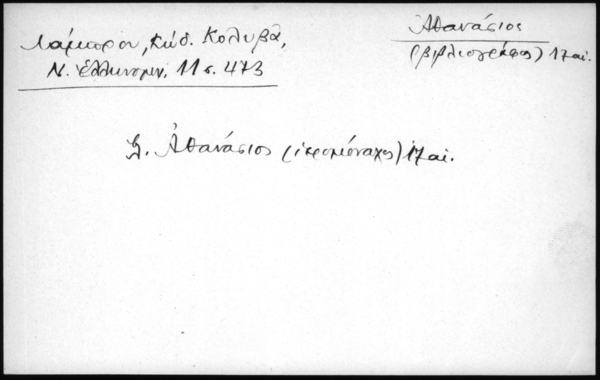 Λάμπρου, Κώδ. Κολυβᾶ,
Ν. Ἑλληνομν. 11 σ. 473
Ἀθανάσιος
(βιβλιογράφος) 17 αἰ.
Ἀθανάσιος (ἱερομόναχος) 17 αἰ.